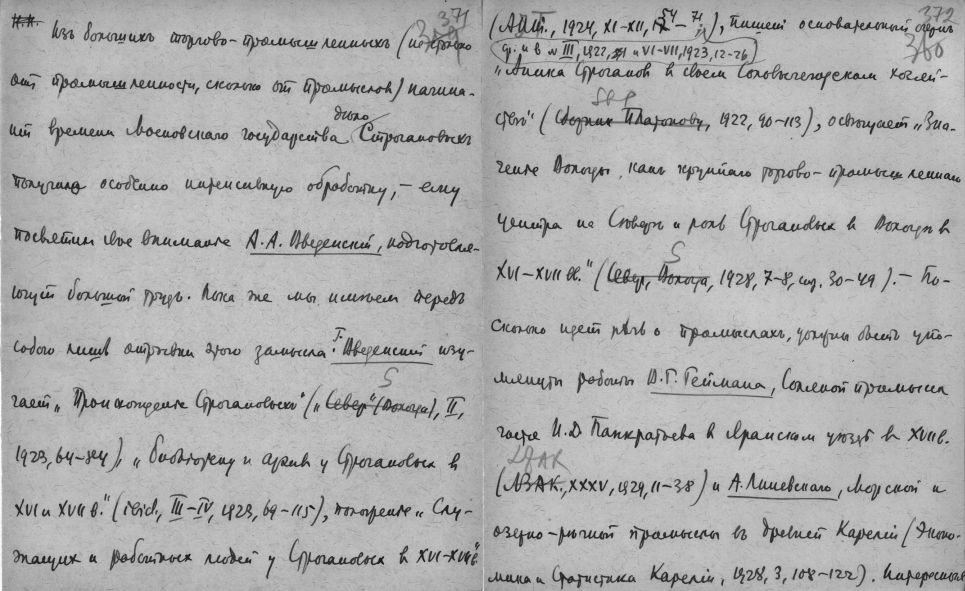 371
Изъ большихъ торгово-промышленныхъ (не столько
отъ промышленности, сколько отъ промысловъ) начина-
ній времени Московскаго государства дѣло Строгановыхъ
получило особенно интенсивную обработку, – ему
посвятилъ свое вниманіе А. А. Введенскій, подготовля-
ющій большой трудъ. Пока же мы имѣемъ передъ
собою лишь отрывки этого замысла: Г. Введенскій изу-
чаетъ „Происхожденіе Строгановыхъ" („Север" (Вологда), II,
1923, 64–84), „Библіотеку и архив у Строгановых в
XVI и XVII в." (ibid., III–IV, 1923, 69–115), положеніе „Слу-
жащих и работных людей у Строгановых в XVI–XVII в."
372
380
(АИТ, 1924, XI–XII, 54–71), пишетъ основательный очеркъ
ср. и в № III, 1922, и VI–VII, 1923, 12–26)
„Аника Строганов в своем Сольвычегодском хозяй-
стве" (Сборник Платонову, 1922, 90–113), освѣщаетъ „Зна-
ченіе Вологды, какъ крупнаго торгово-промышленнаго
центра на Сѣверѣ и роль Строгановых в Вологдѣ в
XVI–XVII вв." (Север, Вологда, 1928, 7–8, стр. 30–49). – По-
скольку идетъ рѣчь о промыслахъ, должны быть упо-
мянуты работы В. Г. Геймана, Соляной промысел
гостя И. Д. Панкратьева в Яренском уѣздѣ в XVII в.
ЛЗАК
(ЛЗАК, XXXV, 1929, 11–38) и А. Линевскаго, Морской и
озерно-речной промыслы въ древней Карелии (Эконо-
мика и Статистика Карелии, 1928, 3, 108–122). Интересныя